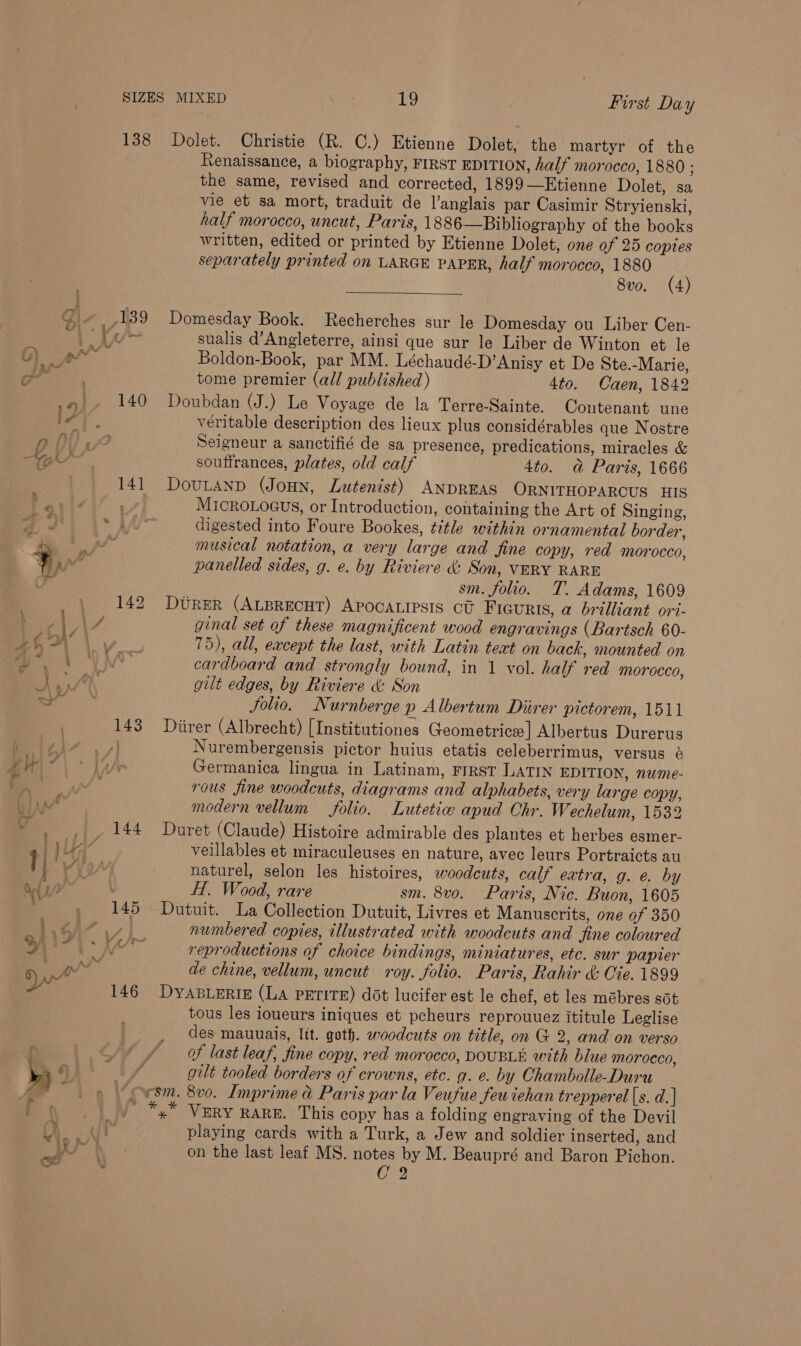 SIZES MIXED 19 First Day
138 Dolet. Christie (R. C.) Etienne Dolet, the martyr of the
Renaissance, a biography, FIRST EDITION, half morocco, 1880 ;
the same, revised and corrected, 1899—Etienne Dolet, sa
vie et sa mort, traduit de l'anglais par Casimir Stryienski,
half morocco, uncut, Paris, 1886—Bibliography of the books
written, edited or printed by Etienne Dolet, one of 25 copies
separately printed on LARGE PAPER, half morocco, 1880
8vo. (4)
139 Domesday Book. Recherches sur le Domesday ou Liber Cen-
sualis d'Angleterre, ainsi que sur le Liber de Winton et le
Boldon-Book, par MM. Léchaudé-D'Anisy et De Ste.-Marie,
tome premier (all published) 4to. Caen, 1842
140 Doubdan (J.) Le Voyage de la Terre-Sainte. Contenant une
véritable description des lieux plus considérables que Nostre
Seigneur a sanctifié de sa presence, predications, miracles &
souffrances, plates, old calf 4to. à Paris, 1666
141 DOULAND (JOHN, Lutenist) ANDREAS ORNITHOPARCUS HIS
MICROLOGUS, or Introduction, containing the Art of Singing,
digested into Foure Bookes, title within ornamental border,
musical notation, a very large and fine copy, red morocco,
panelled sides, g. e. by Riviere & Son, VERY RARE
sm. folio. T. Adams, 1609
142 DÜRER (ALBRECHT) APOCALIPSIS CŪ FIGURIS, a brilliant ori-
ginal set of these magnificent wood engravings (Bartsch 60-
75), all, except the last, with Latin text on back, mounted on
cardboard and strongly bound, in 1 vol. half red morocco,
gilt edges, by Riviere & Son
folio. Nurnberge p Albertum Dürer pictorem, 1511
143 Dürer (Albrecht) [Institutiones Geometricæ] Albertus Durerus
Nurembergensis pictor huius etatis celeberrimus, versus è
Germanica lingua in Latinam, FIRST LATIN EDITION, nume-
rous fine woodcuts, diagrams and alphabets, very large copy,
modern vellum folio. Lutetiæ apud Chr. Wechelum, 1532
144 Duret (Claude) Histoire admirable des plantes et herbes esmer-
veillables et miraculeuses en nature, avec leurs Portraicts au
naturel, selon les histoires, woodcuts, calf extra, g. e. by
H. Wood, rare sm. 8vo. Paris, Nic. Buon, 1605
145 Dutuit. La Collection Dutuit, Livres et Manuscrits, one of 350
numbered copies, illustrated with woodcuts and fine coloured
reproductions of choice bindings, miniatures, etc. sur papier
de chine, vellum, uncut roy. folio. Paris, Rahir & Cie. 1899
146 DYABLERIE (LA PETITE) dōt lucifer est le chef, et les mēbres sōt
tous les ioueurs iniques et pcheurs reprouuez ititule Leglise
des mauuais, lit. goth. woodcuts on title, on G 2, and on verso
of last leaf, fine copy, red morocco, DOUBLÉ with blue morocco,
gilt tooled borders of crowns, etc. g. e. by Chambolle-Duru
sm. 8vo. Imprime à Paris par la Veufue feu iehan trepperel [s. d.]
*** VERY RARE. This copy has a folding engraving of the Devil
playing cards with a Turk, a Jew and soldier inserted, and
on the last leaf MS. notes by M. Beaupré and Baron Pichon.
C 2